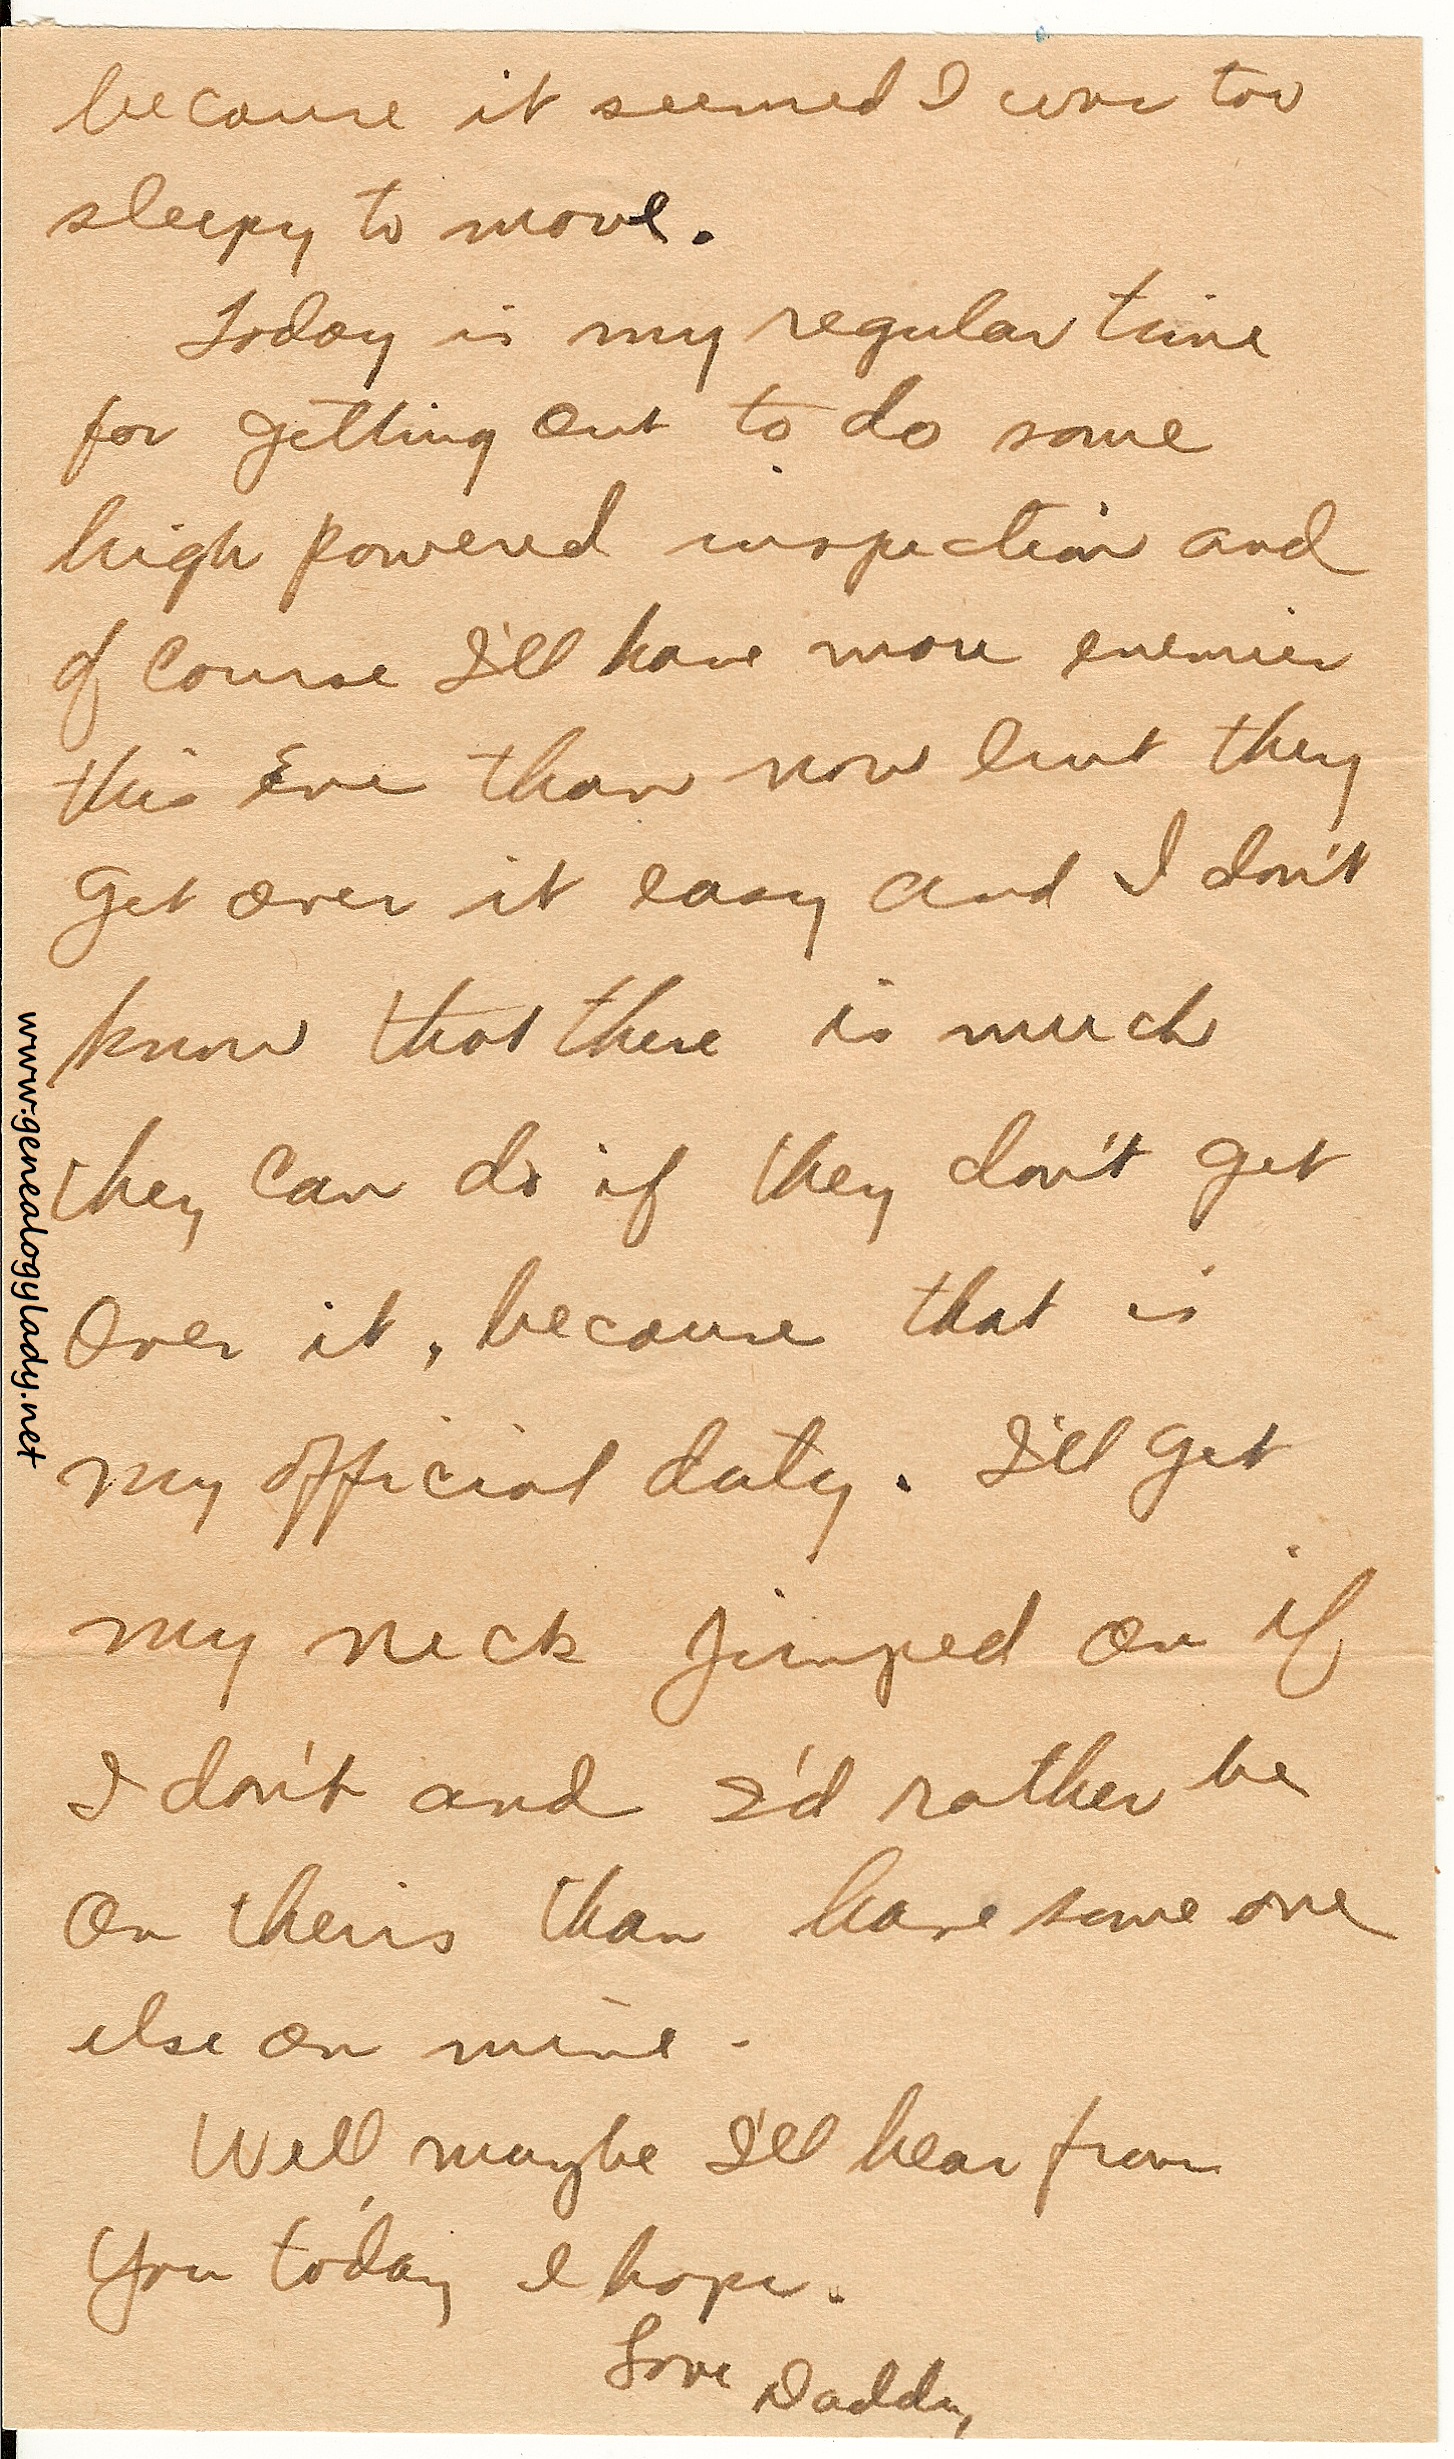 because it seemed I was too
sleepy to move.
Today is my regular time
for getting out to do some
high powered inspection and
of course I'll have more enemies
this Eve than now but they
get over it easy and I don't
know that there is much
they can do if they don't get
over it, because that is
my official duty. I'll get
my neck jumped on if
I don't and I'd rather be
on theirs than have some one
else on mine.
Well, maybe I'll hear from
you today I hope.
Love Daddy,
www.genealogylady.net